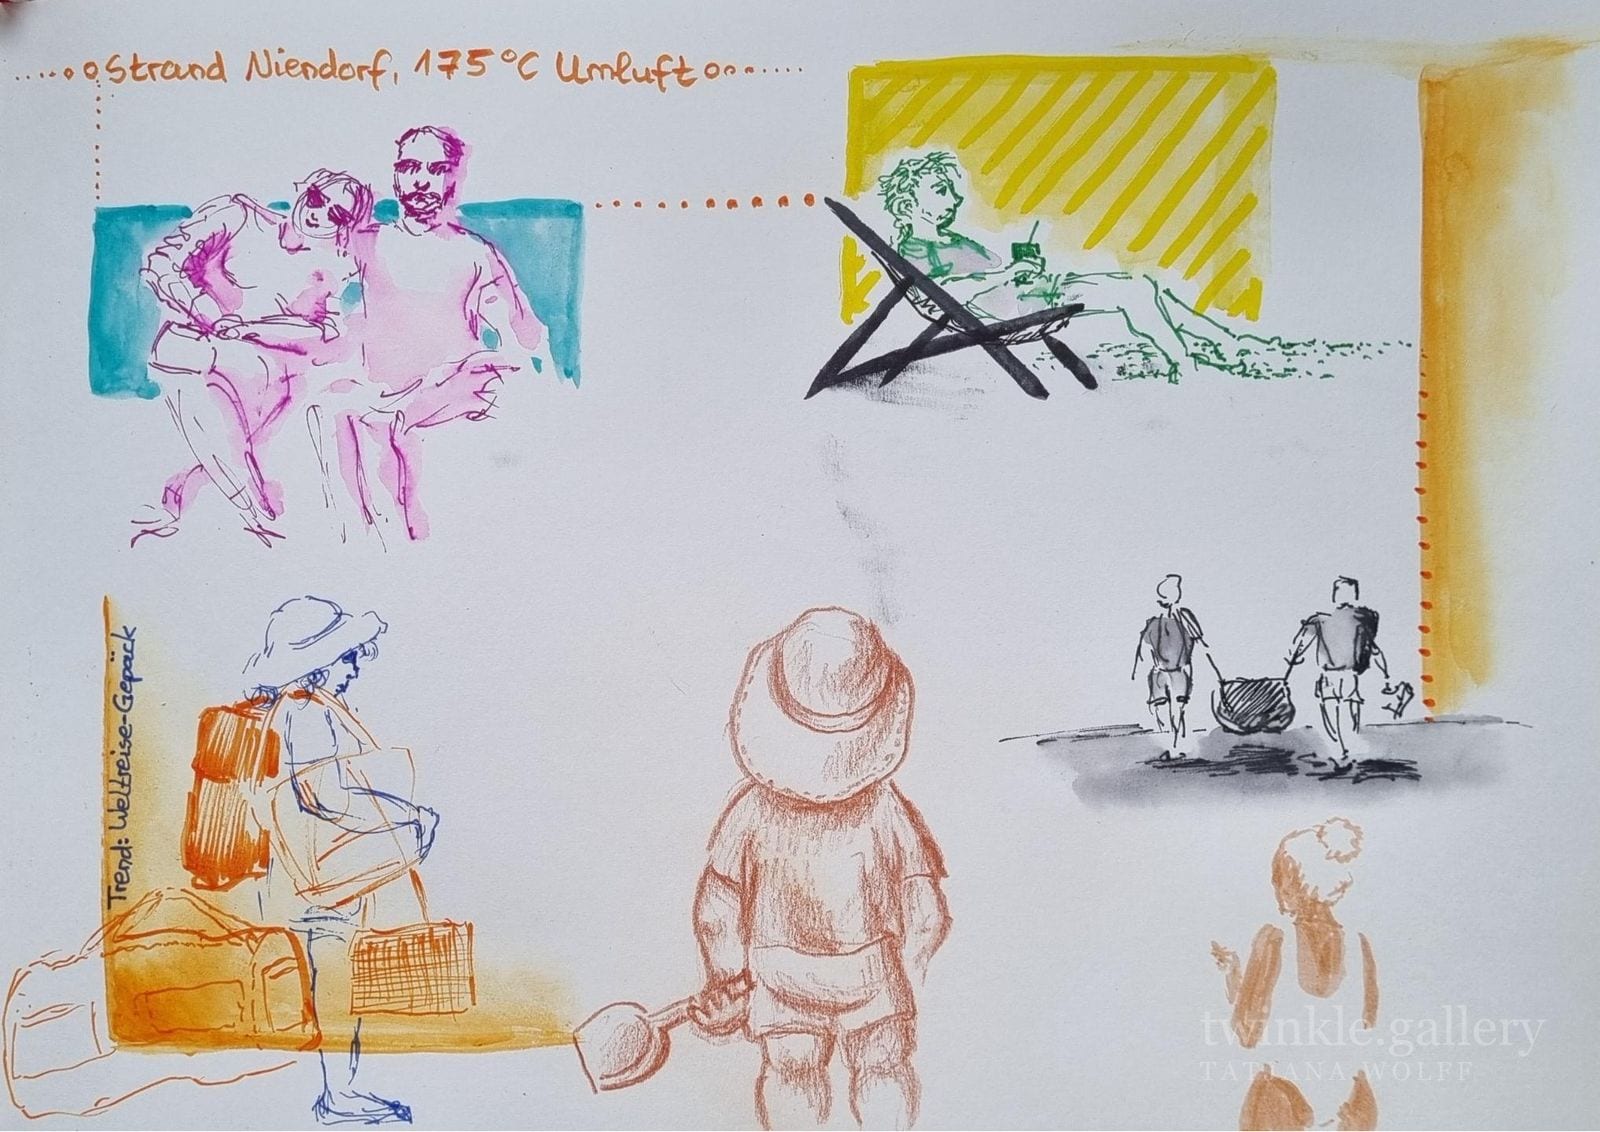 Strand Niendorf, 175°C Umluft
Trend: Weltreise-Gepäck
twinkle.gallery
TATIANA WOLFF